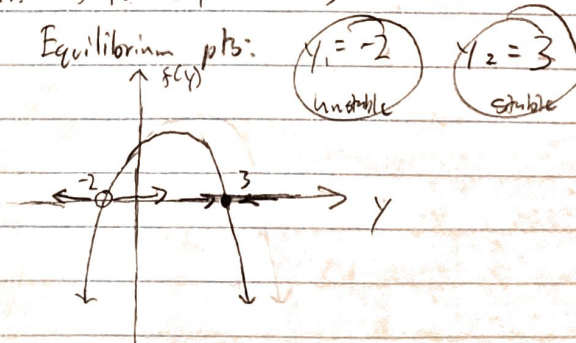 Equilibrium pts: y₁ = -2 y₂ = 3
unstable stable
f(y)
-2 3
y